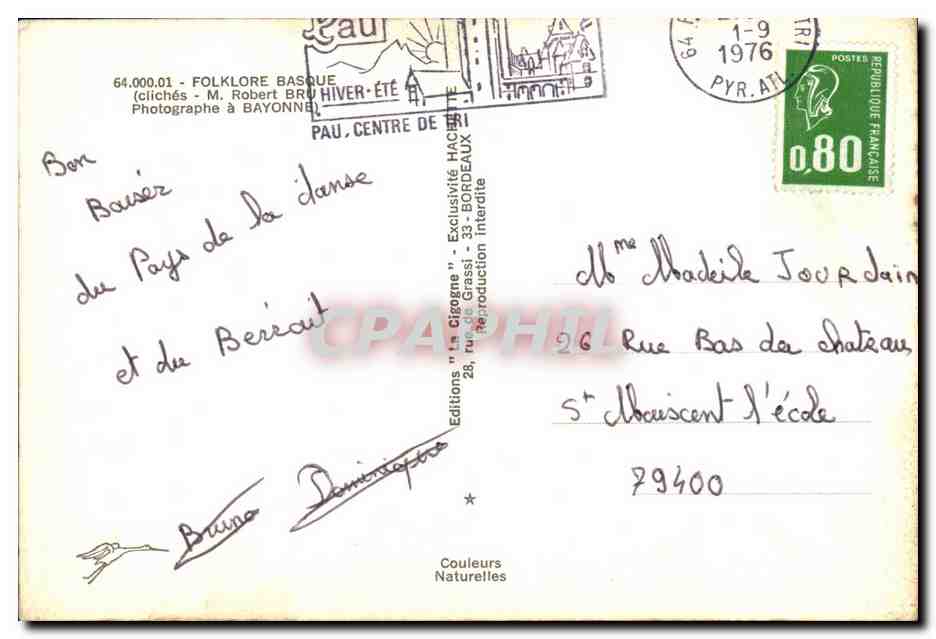 64.000.01 - FOLKLORE BASQUE
(clichés - M. Robert BRU
Photographe à BAYONNE)
Pau
HIVER-ÉTÉ
PAU, CENTRE DE TRI
1-9
1976
PYR. ATL.
POSTES
RÉPUBLIQUE FRANÇAISE
0,80
Bon
Baisér
du Pays de la danse
et du Berrait
Bruno Dominique
Editions "La Cigogne" - Exclusivité HACHETTE
28, rue de Grassi - 33 - BORDEAUX
Réproduction interdite
Mme Madeile JOURdain
26 Rue Bas du chateau
St Maiscent l'école
79400
Couleurs
Naturelles
CPAPHIL